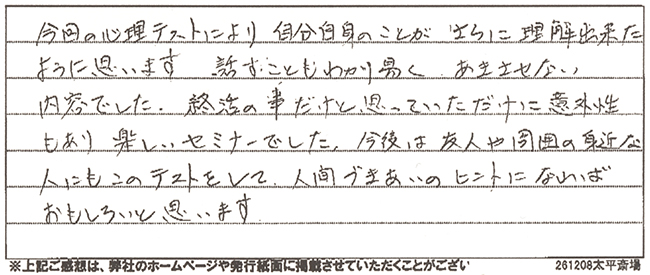 今回の心理テストにより 自分自身のことが さらに理解出来た
ように思います 話すこともわかり易く あきさせない
内容でした。終活の事だけと思っていただけに意外性
もあり 楽しいセミナーでした。今後は友人や周囲の身近な
人にもこのテストをして、人間づきあいのヒントになれば
おもしろいと思います
※上記ご感想は、弊社のホームページや発行紙面に掲載させていただくことがござい
261208太平斎場